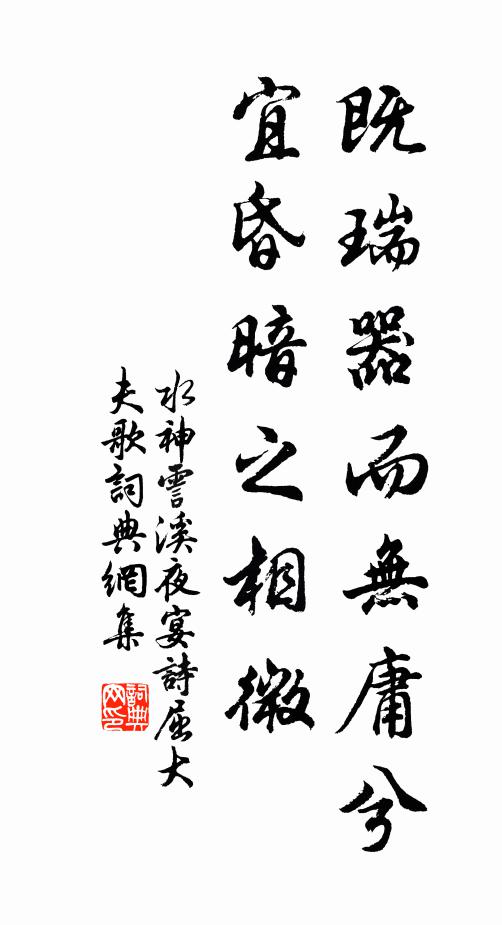 既瑞器而無庸兮
宜昏暗之相微
水神霅溪夜宴詩屈大
夫歌詞典網集
詞典
网印